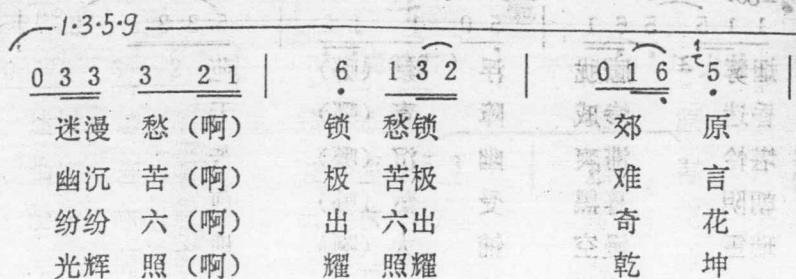 1·3·5·9
0 3 3 3 2 1 | 6 1 3 2 | 0 1 6 5 |
迷漫 愁 (啊) 锁 愁锁 郊 原
幽沉 苦 (啊) 极 苦极 难 言
纷纷 六 (啊) 出 六出 奇 花
光辉 照 (啊) 耀 照耀 乾 坤